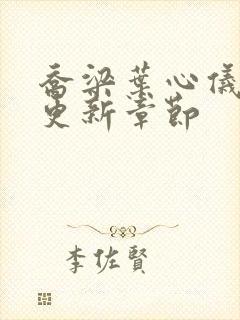 喬梁葉心儀
更新章節
李佐賢